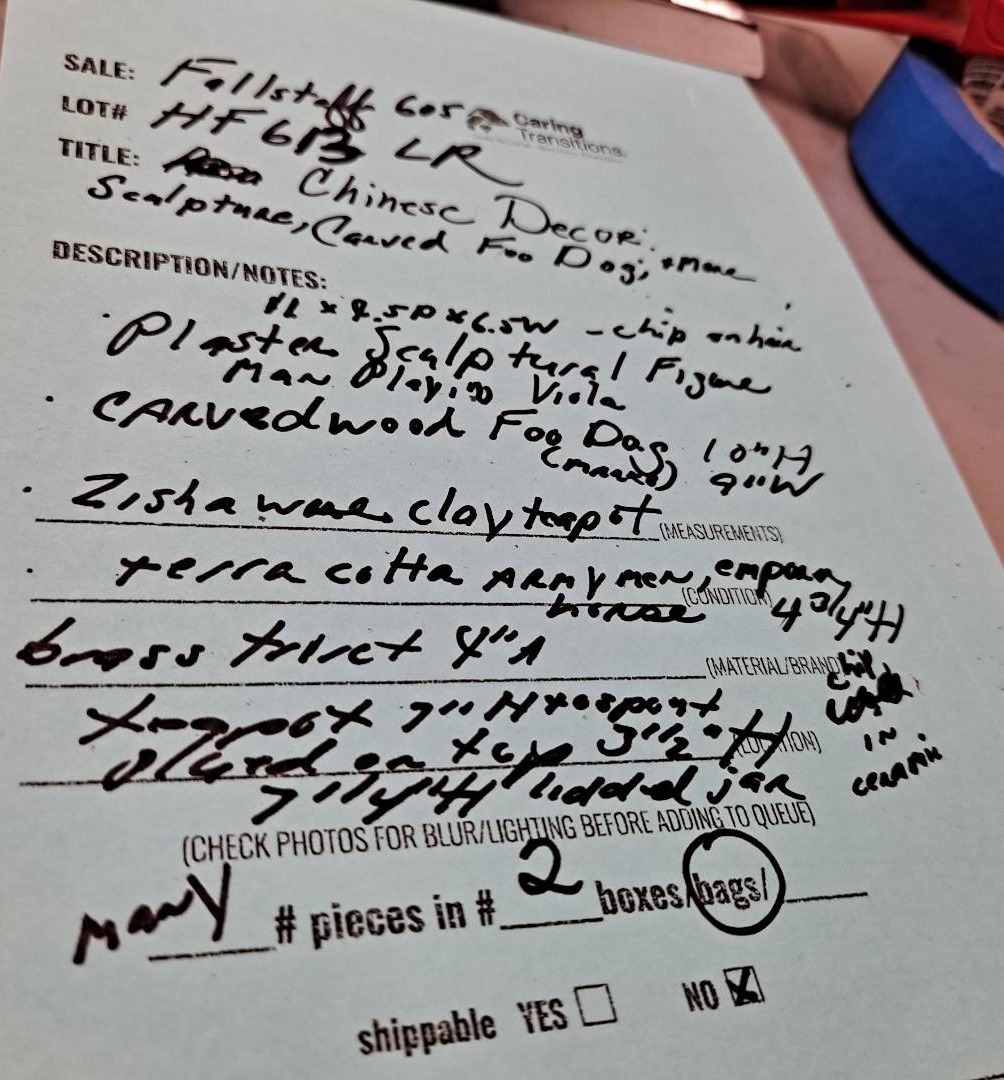 SALE: Fallstaff 605
Caring
Transitions
LOT# HF 613 LR
TITLE: Chinese Decor:
Sculpture, Carved Foo Dog, + more
DESCRIPTION/NOTES:
x 8.5D x 6.5W - chip on hair
· Plaster Sculptural Figure
Man Playing Viola
· CARved wood Foo Dog 10"H
9"W
· Zisha ware clay teapot
(MEASUREMENTS)
· terra cotta ARMY MEN,
horse (CONDITION) 4 3/4"H
brass trivet 4"
(MATERIAL/BRAND)
teapot 7"H
glued on top 3 1/2"H
7 1/4"H lidded jar
IN
ceramic
(CHECK PHOTOS FOR BLUR/LIGHTING BEFORE ADDING TO QUEUE)
Many # pieces in # 2 boxes/bags/
shippable YES NO